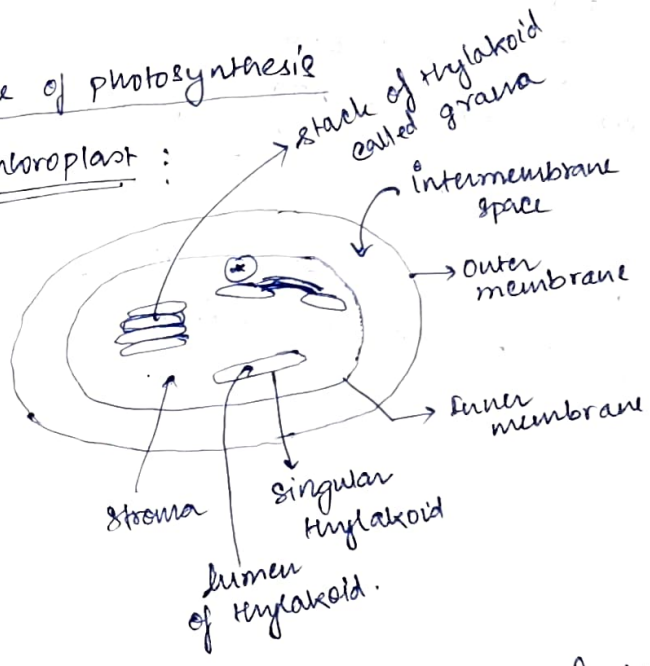 of photosynthesis
stack of thylakoid
called grana
hloroplast :
intermembrane
space
outer
membrane
Inner
membrane
stroma
singular
thylakoid
lumen
of thylakoid.